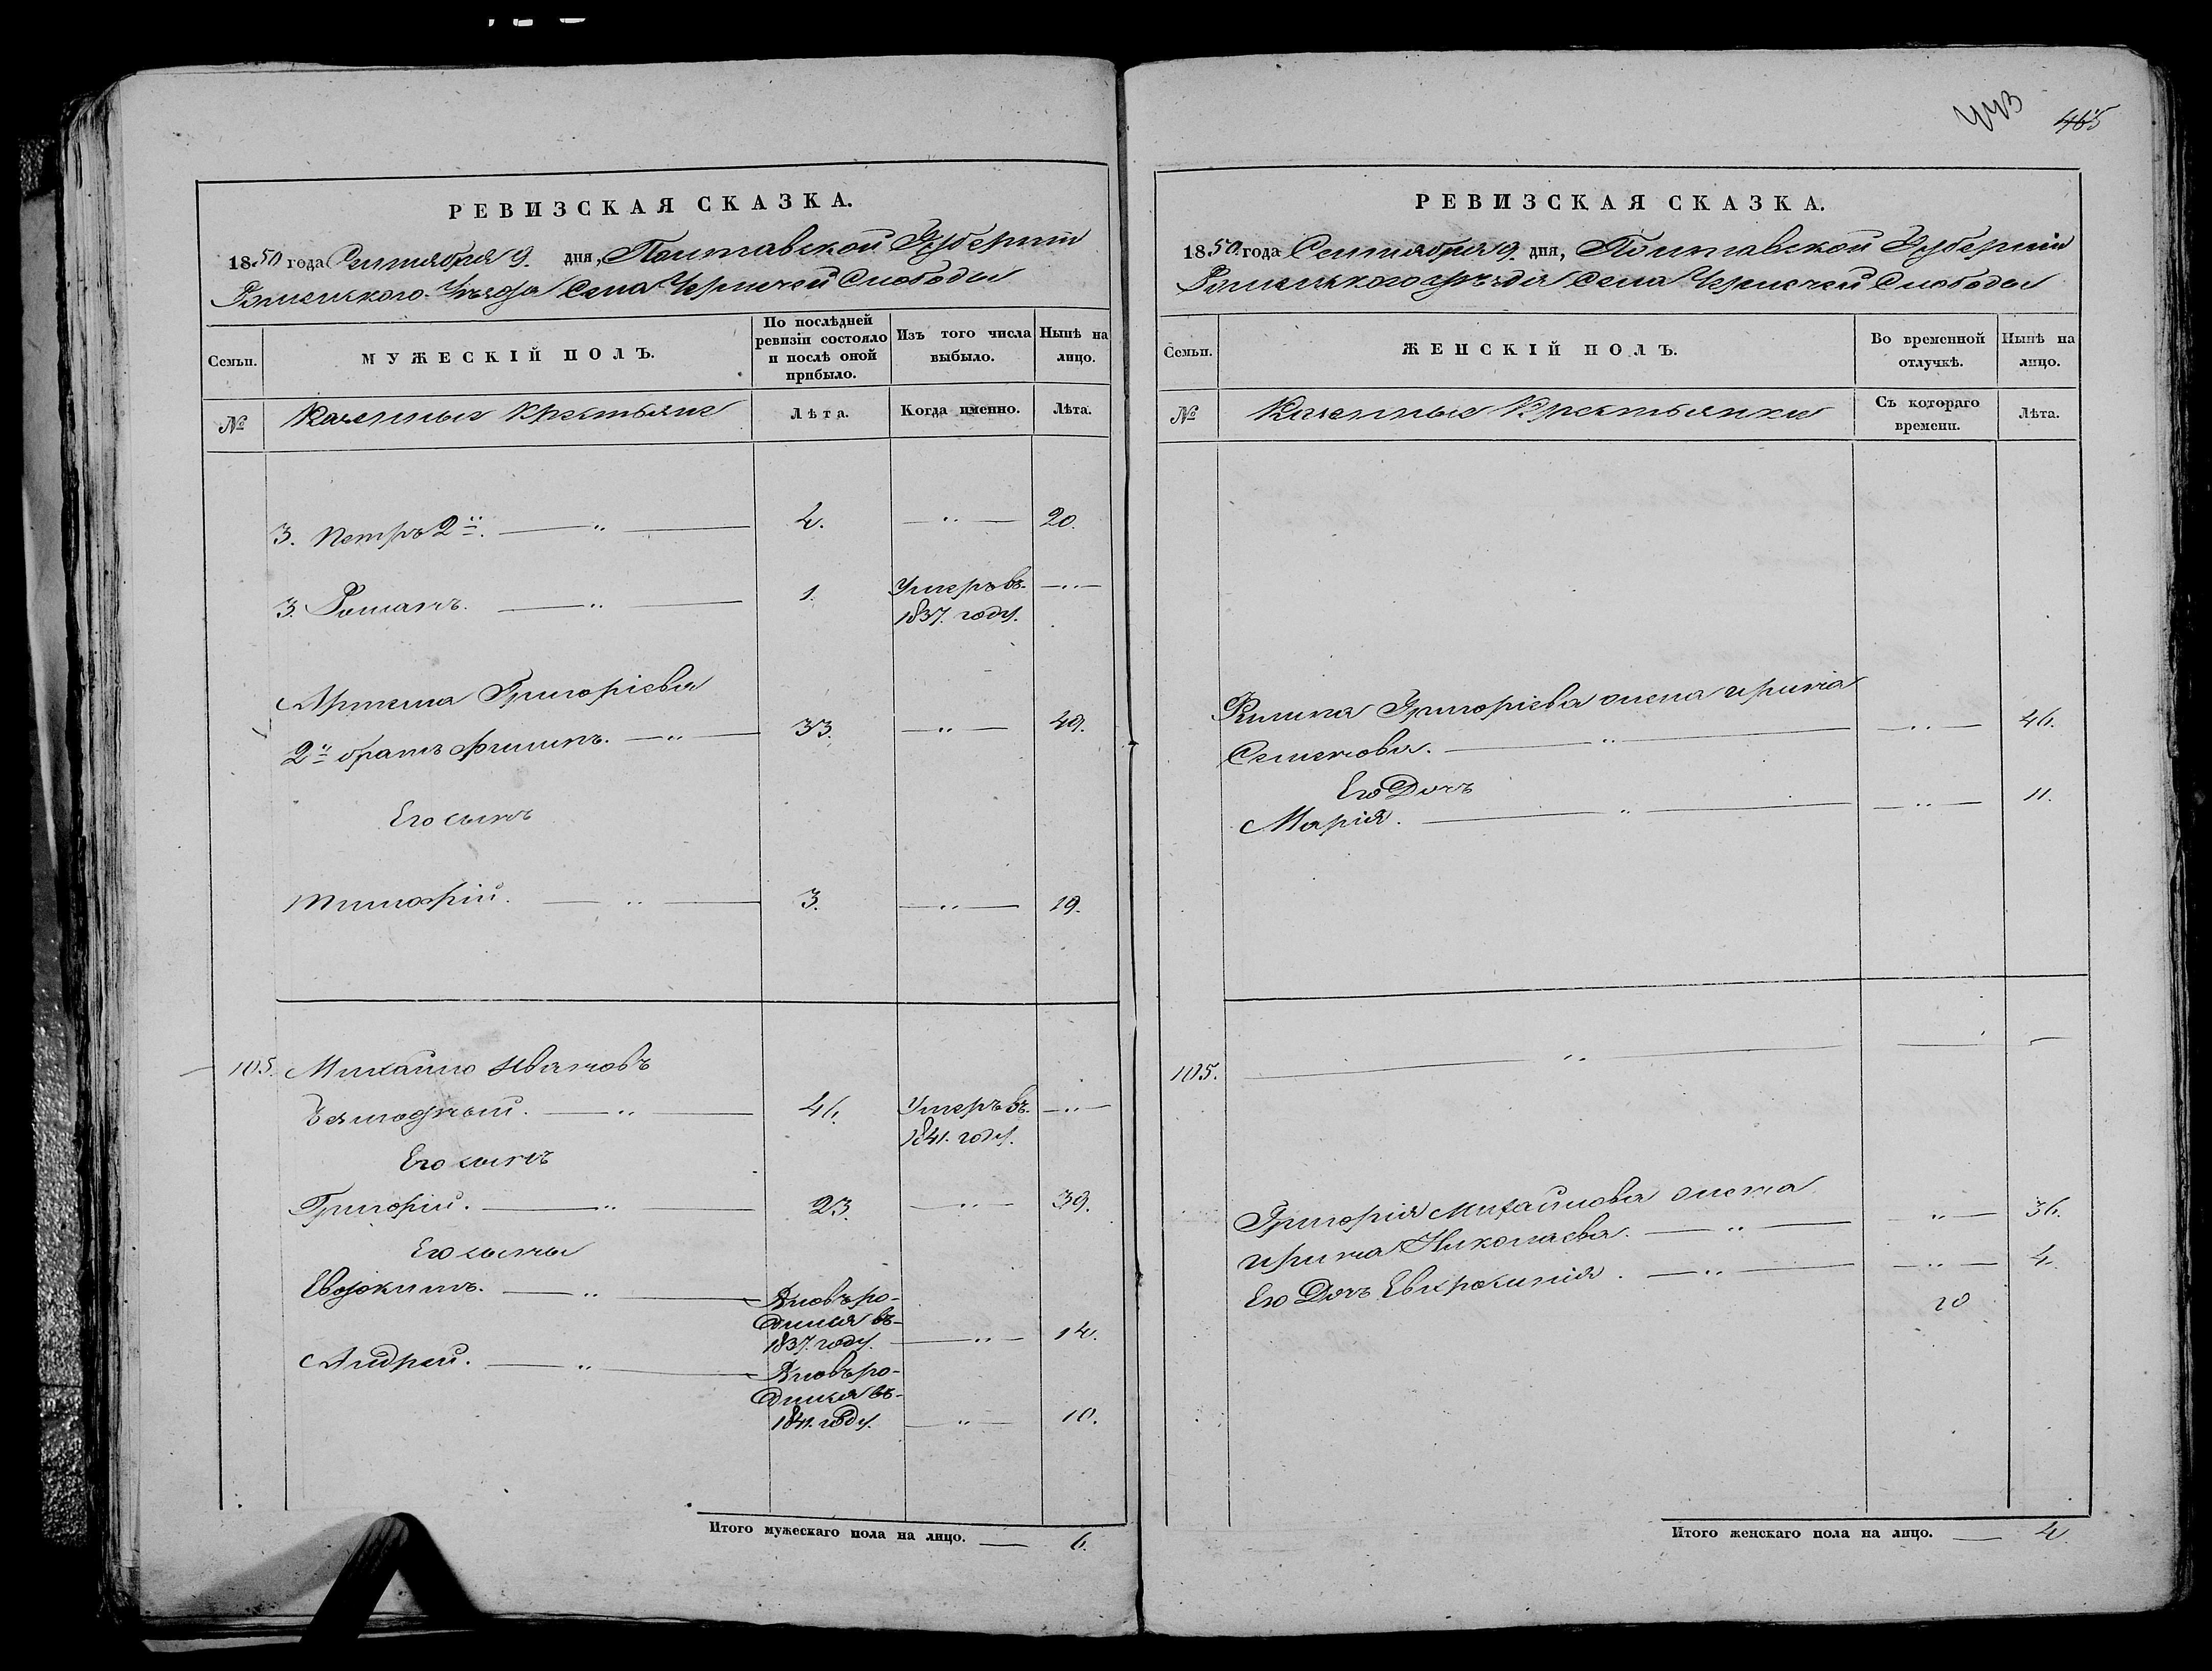 443
465
РЕВИЗСКАЯ СКАЗКА.
1850 года Сентября 9. дня, Полтавской Губернии
Роменского Уѣзда Села Чернечей Слободы
Семьи.
МУЖЕСКІЙ ПОЛЪ.
По послѣдней ревизіи состояло и послѣ оной прибыло.
Изъ того числа выбыло.
Нынѣ на лицо.
№
Казенные Крестьяне
Лѣта.
Когда именно.
Лѣта.
3. Петръ 2й. — " — 4. — " — 20.
3. Романъ. — " — 1. Умеръ въ — " —
1837. году.
Артема Григоріева
2й братъ Филипъ. — " — 33. — " — 49.
Его сынъ
Тимофій. — " — 3. — " — 19.
105. Михайло Ивановъ
— " — 46. Умеръ въ — " —
1841. году.
Его сынъ
Григорій. — " — 23. — " — 39.
Его сыны
Евдокимъ. — " — Вновь ро-
дился въ
1837. году. — " — 14.
Андрей. — " — Вновь ро-
дился въ
1841. году. — " — 10.
Итого мужескаго пола на лицо. — 6.
РЕВИЗСКАЯ СКАЗКА.
1850 года Сентября 9. дня, Полтавской Губерніи
Роменского уѣзда Села Чернечей Слободы
Семьи.
ЖЕНСКІЙ ПОЛЪ.
Во временной отлучкѣ.
Нынѣ на лицо.
№
Казенные Крестьянки
Съ котораго времени.
Лѣта.
Филипа Григоріева жена Ирина
Семенова. — " — — " — 46.
Его Дочь
Марія. — " — — " — 11.
105. — " — — —
Григорія Михайлова жена
Ирина Николаева. — " — — " — 36.
Его Дочь Евфросинія. — " — — " — 4.
Итого женскаго пола на лицо. — 4.